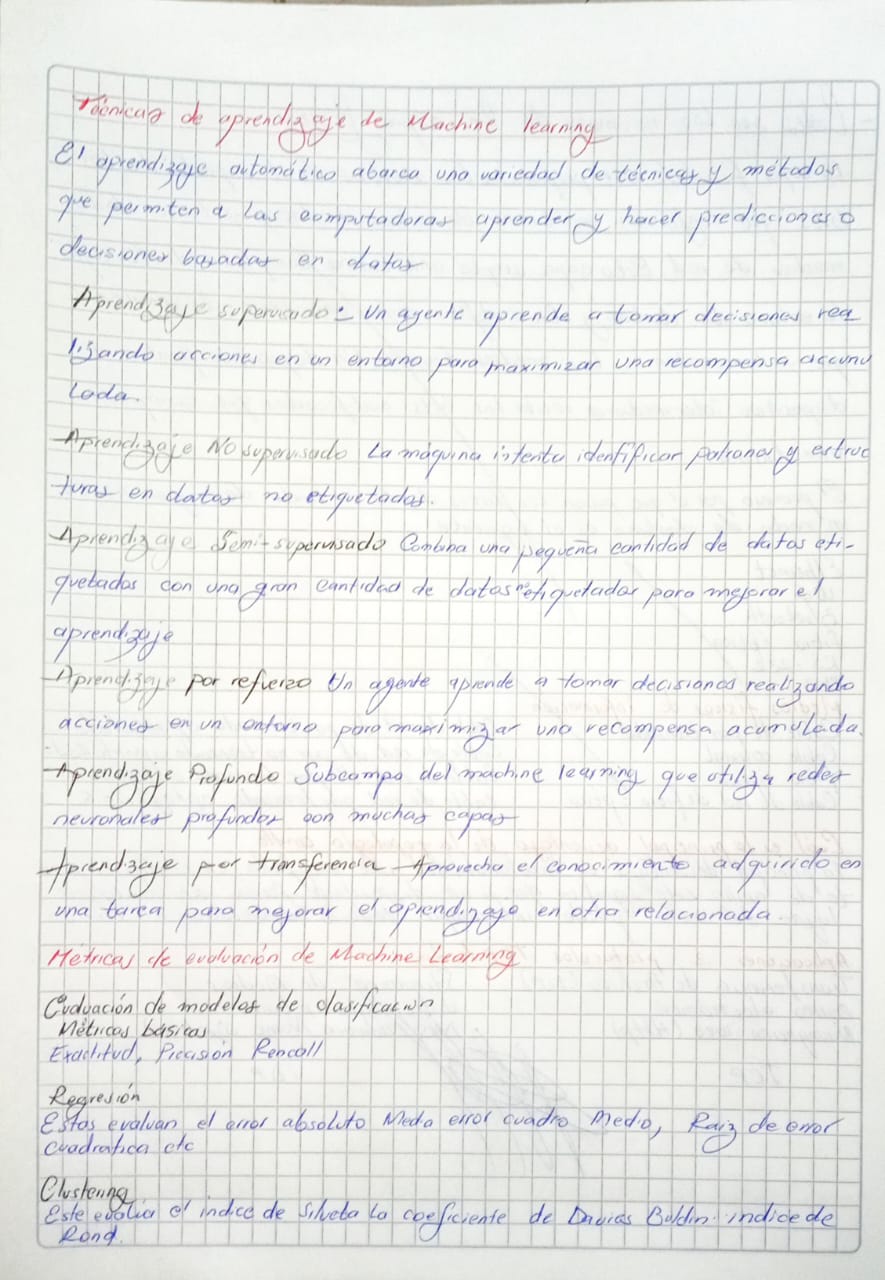 Técnicas de aprendizaje de Machine learning
El aprendizaje automático abarca una variedad de técnicas y métodos
que permiten a las computadoras aprender y hacer predicciones o
decisiones basadas en datos
Aprendizaje supervisado: Un agente aprende a tomar decisiones rea
lizando acciones en un entorno para maximizar una recompensa accunu
lada.
Aprendizaje No supervisado La máquina intenta idenfificar patrones y estruc
turas en datos no etiquetados.
Aprendizaje Semi-supervisado Combina una pequeña cantidad de datos eti-
quetados con una gran cantidad de datos no etiquetados para mejorar el
aprendizaje
Aprendizaje por refuerzo Un agente aprende a tomar decisiones realizando
acciones en un entorno para maximizar una recompensa acumulada.
Aprendizaje Profundo Subcampo del machine learning que utiliza redes
neuronales profundas con muchas capas
Aprendizaje por transferencia Aprovecha el conocimiento adquirido en
una tarea para mejorar el aprendizaje en otra relacionada.
Métricas de evaluación de Machine Learning
Evaluación de modelos de clasificación
Métricas básicas
Exactitud, Precisión Rencall
Regresión
Estas evaluan el error absoluto Medo error cuadro Medio, Raiz de error
cuadratica etc
Clustering
Este evalua el indice de Silueta la coeficiente de Davies Boldin indice de
Rond.